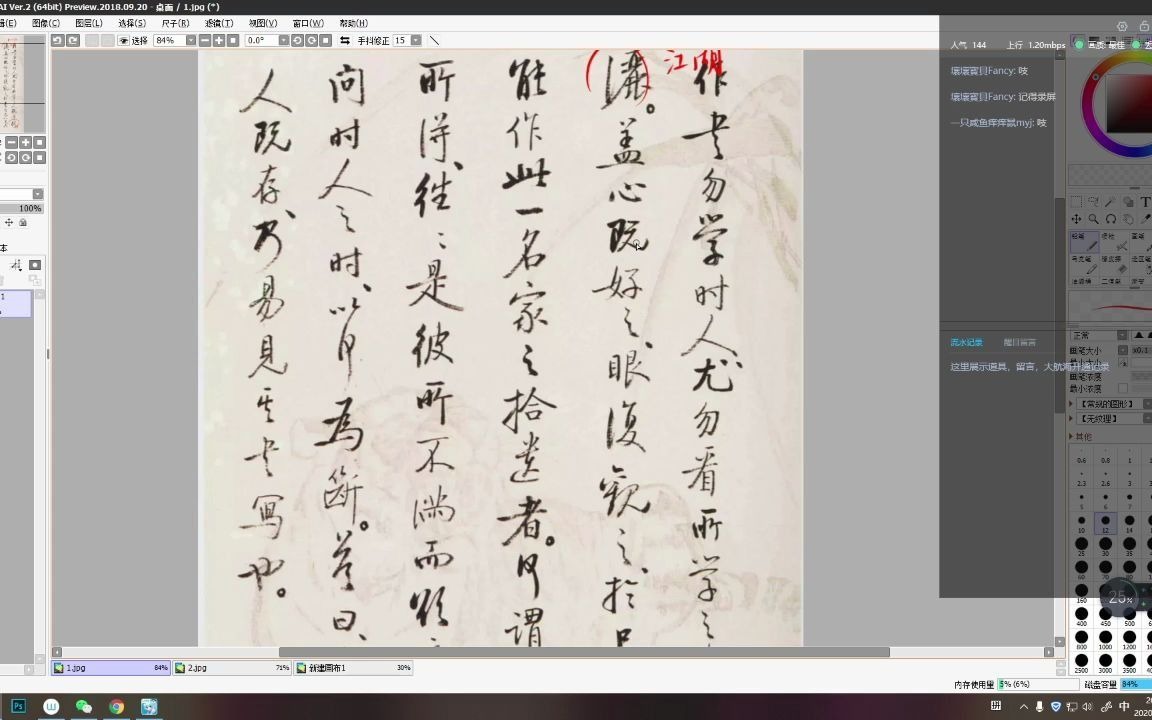 AI Ver.2 (64bit) Preview.2018.09.20 - 桌面 / 1.jpg (*)
图像(C) 图层(L) 选择(S) 尺子(R) 滤镜(T) 视图(V) 窗口(W) 帮助(H)
选择 84% 0.0° 手抖修正 15
人气 144 上行 1.20mbps 画质: 最佳
壞壞寶貝Fancy: 吱
壞壞寶貝Fancy: 记得录屏
一只咸鱼痒痒鼠myj: 吱
江湖
作书勿学时人、尤勿看所学之
濃。盖心既好之、眼復觀之、於
能作此一名家之拾遗者。何謂
所得、往々是彼所不满而
问时人之时、以何為断。答曰、
人既存、乃易見其书寫也。
100%
流水记录 醒目留言
这里展示道具，留言，大航海开通记录
正常
画笔大小
最小大小
画笔浓度
最小浓度
【常规的圆形】
【无纹理】
其他
0.6 0.8 1
2.3 2.6 3
5 6 7
10 12 14
25 30 35
60 70 80
160
400 450 500
800 1000 1200
2500 3000 3500
25%
1.jpg 84% 2.jpg 71% 新建画布1 30%
内存使用量 5% (6%) 磁盘容量 84%
Ps
中